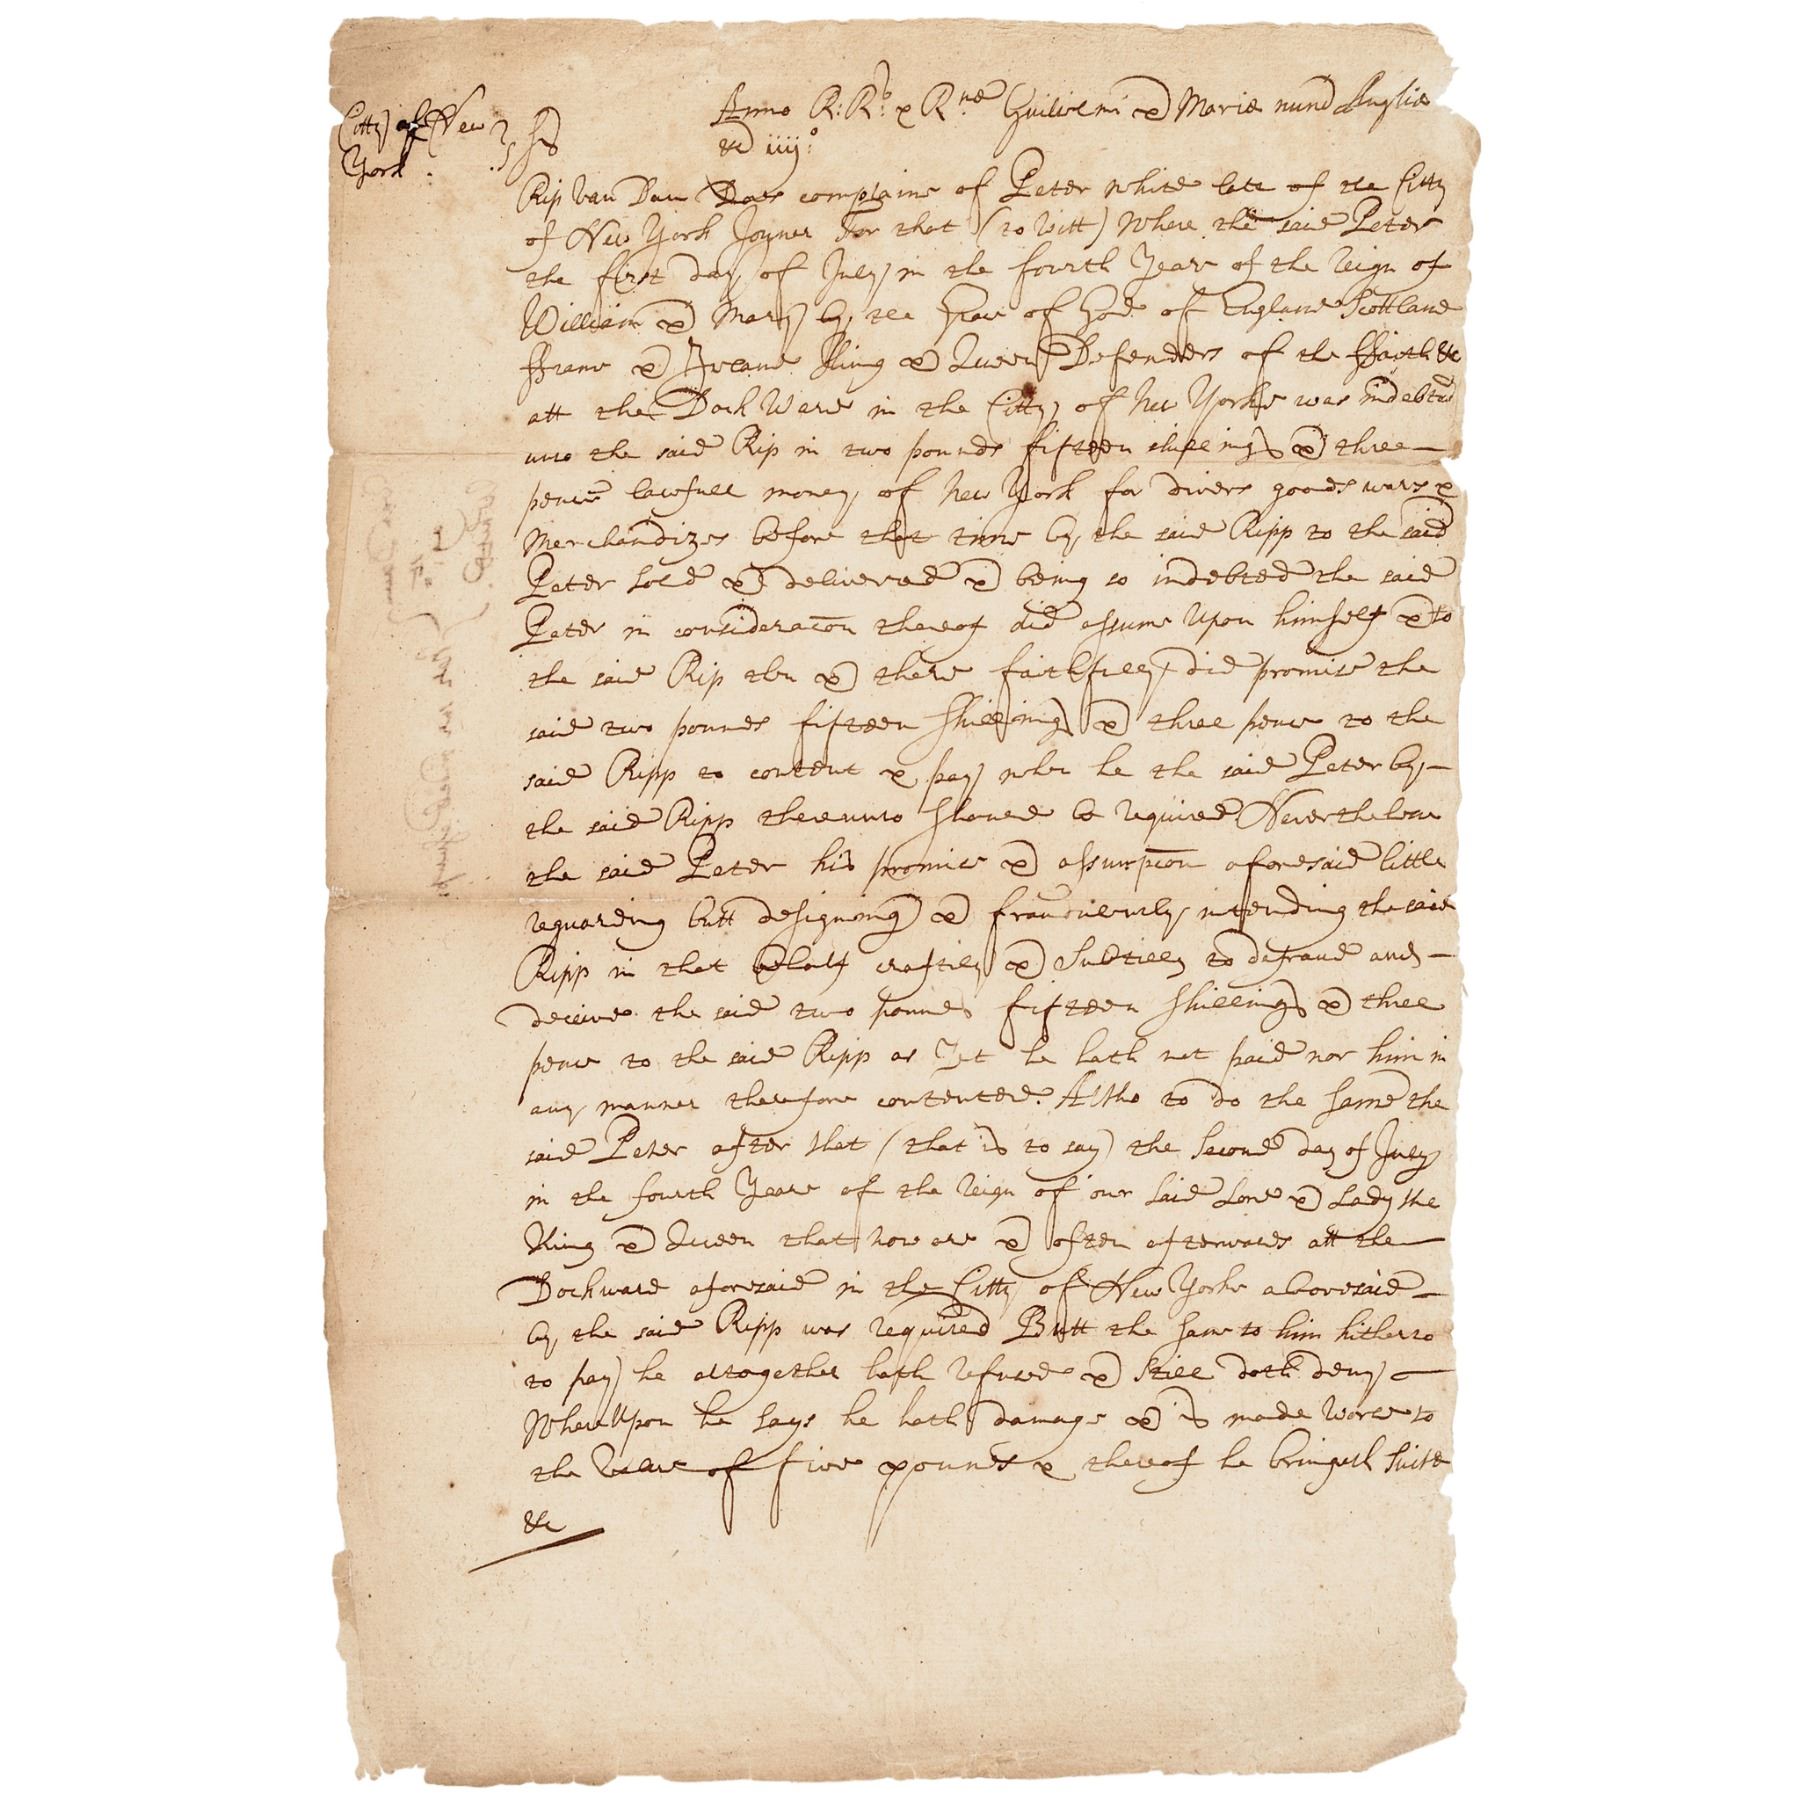 Citty of New York } ss
Anno R: Rs & Rne Guilielmi & Marie nunc Anglie
&c iiij:o
Rip Van Dam Does complaine of Peter White late of the Citty
of New York Joyner For that (to Witt) Where the said Peter
the first day of July in the fourth Yeare of the Reign of
William & Mary by the Grace of God of England Scottland
ffrance & Ireland King & Queen Defenders of the ffaith &c
att the Dock Ward in the Citty of New Yorke was indebted
unto the said Rip in two pounds fifteen shillings & three
pence lawfull money of New York for divers goods wars &
Merchandizes before that time by the said Ripp to the said
Peter sold & delivered & being so indebted the said
Peter in consideracon thereof did assume Upon himself & to
the said Rip then & there faithfully did promise the
said two pounds fifteen shillings & three pence to the
said Ripp to content & pay when he the said Peter by
the said Ripp thereunto should be required Neverthelesse
the said Peter his promise & assumpcon aforesaid little
reguarding butt designing & fraudulently intending the said
Ripp in that behalf craftily & Subtilly to defraud and
deceive the said two pounds fifteen shillings & three
pence to the said Ripp as Yet he hath not paid nor him in
any manner therefore contented. Altho to do the same the
said Peter after that (that is to say) the Second day of July
in the fourth Yeare of the Reign of our Said Lord & Lady the
King & Queen that now are & often afterwards att the
Dockward aforesaid in the Citty of New Yorke abovesaid
by the said Ripp was required Butt the same to him hitherto
to pay he altogether hath refused & still doth deny
Whereupon he says he hath damage & is made worse to
the Value of five pounds & thereof he bringeth Suite
&c